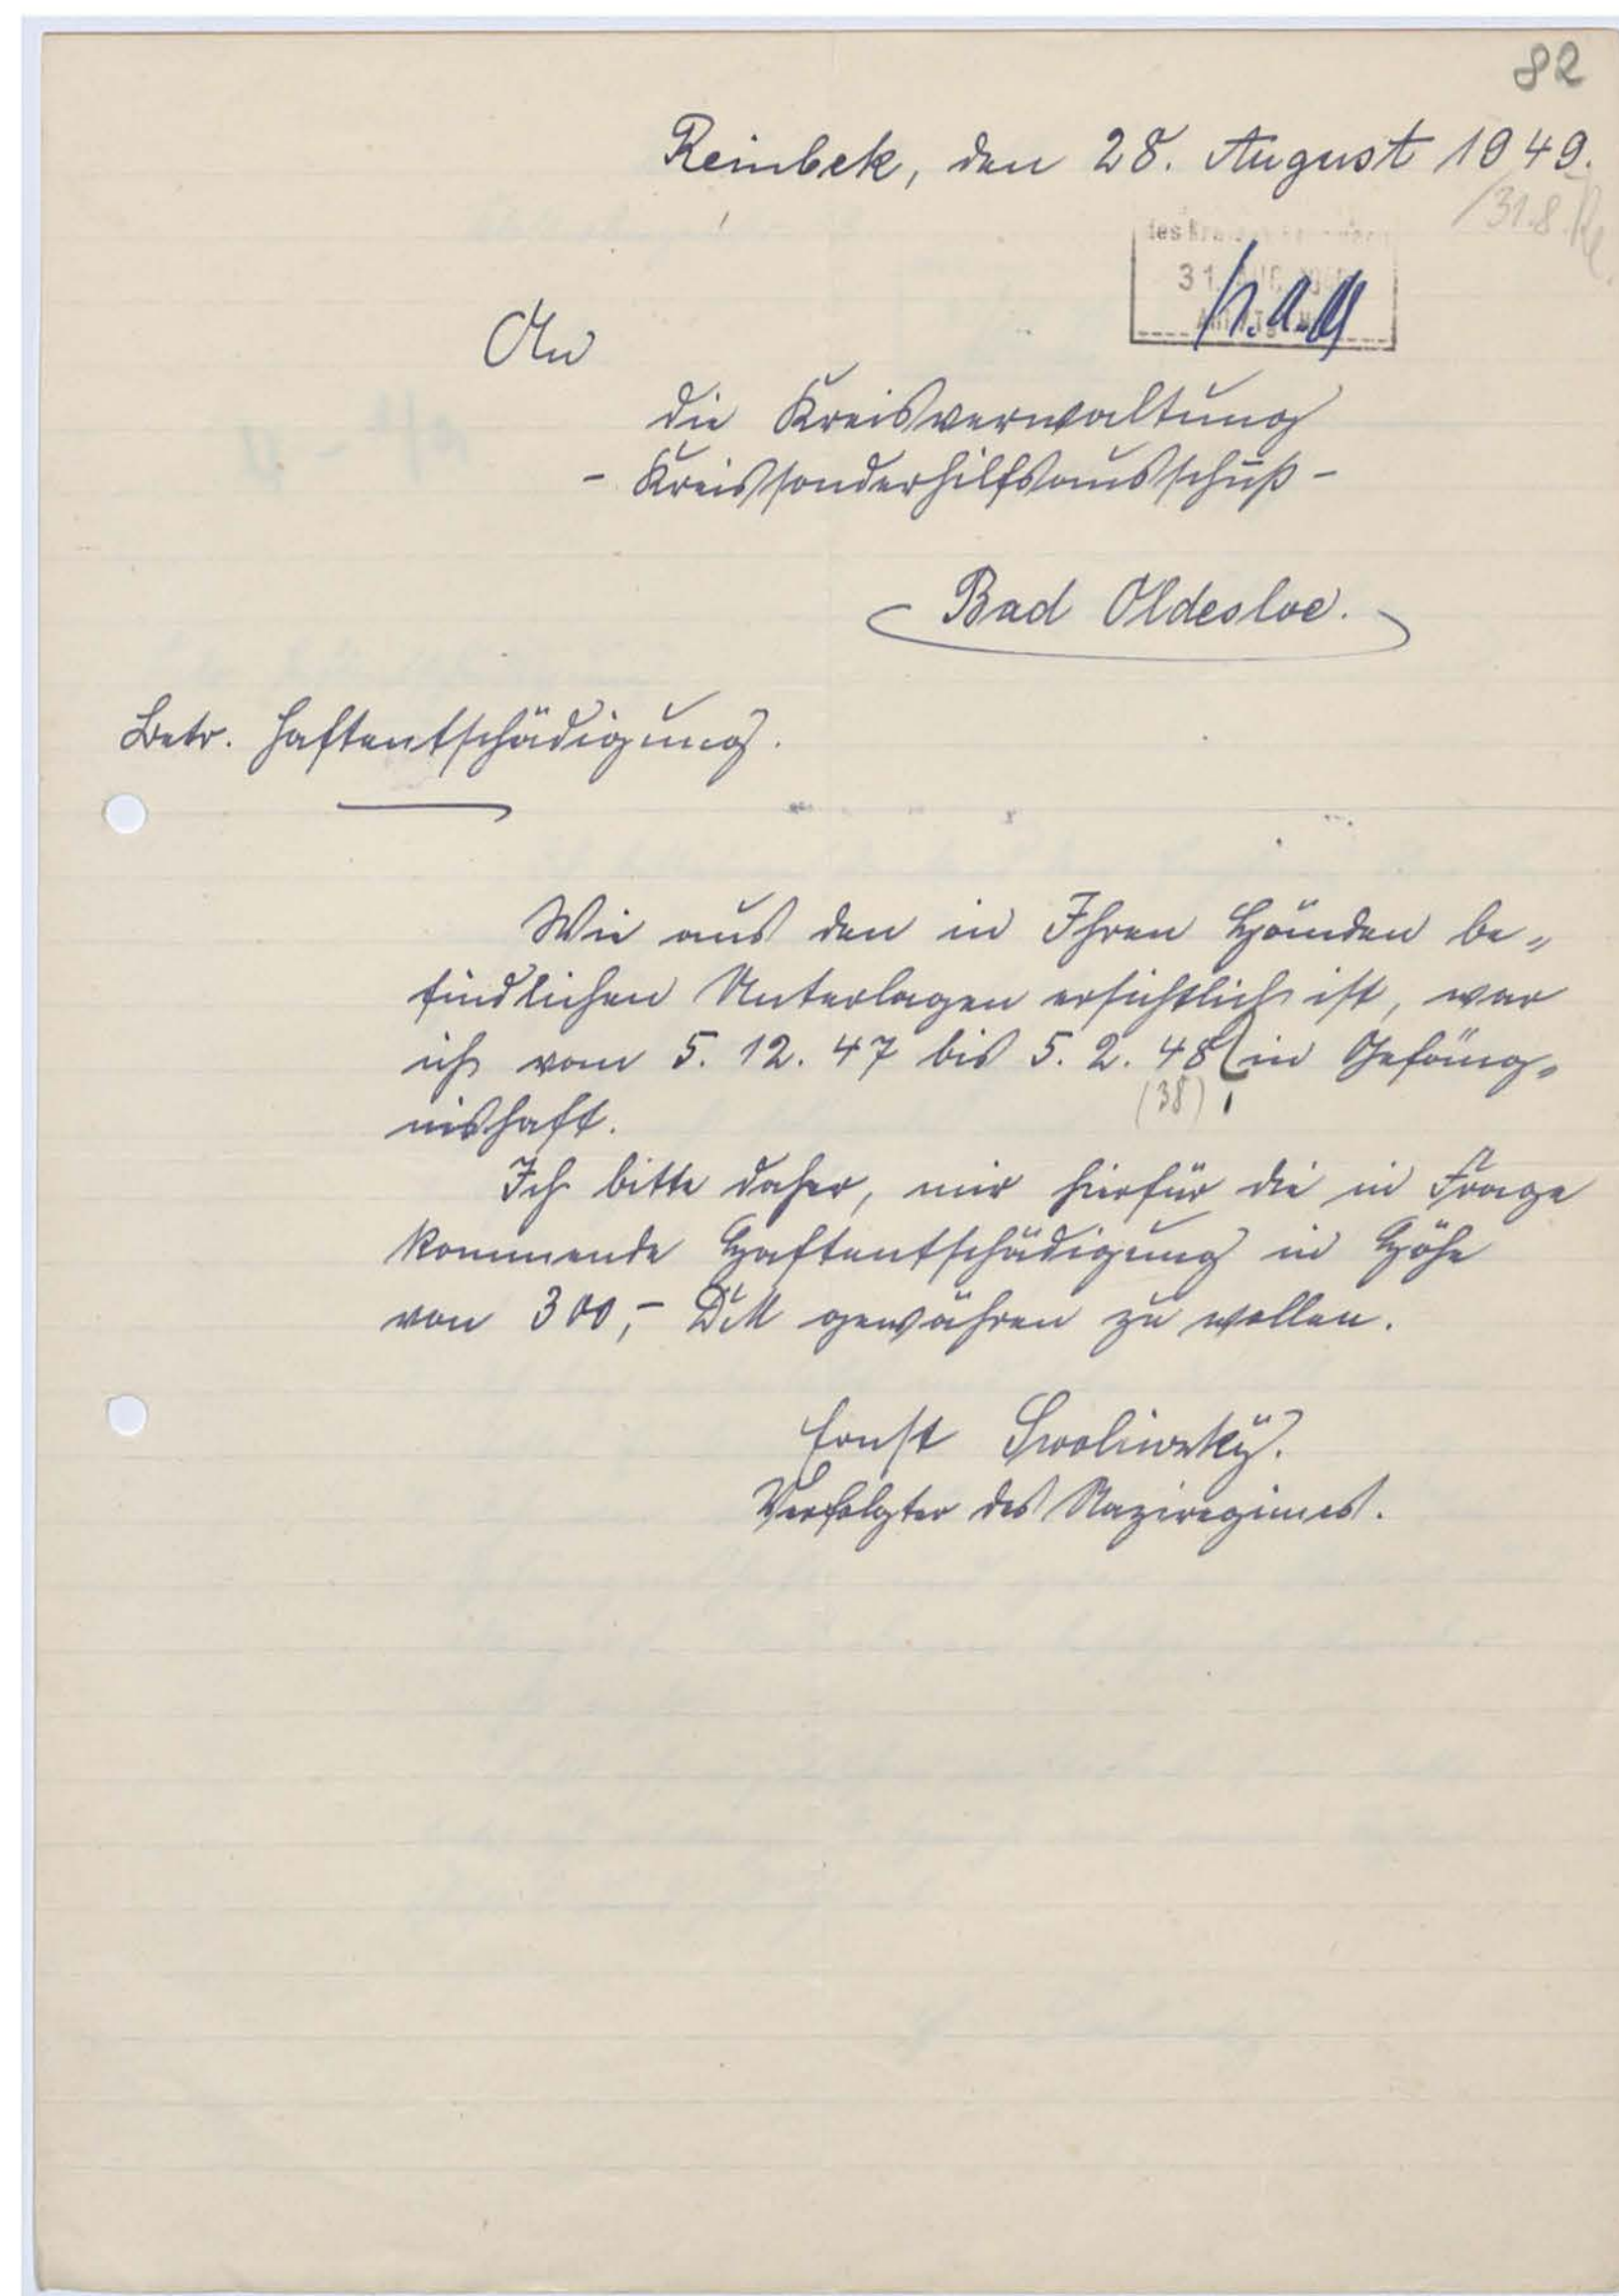 82
Reinbek, den 28. August 1949.
31.8.
31
An
die Kreisverwaltung
- Kreissonderhilfsausschuß -
Bad Oldesloe.
Betr. Haftentschädigung.
Wie aus den in Ihren Händen be„
findlichen Unterlagen ersichtlich ist, war
ich vom 5. 12. 47 bis 5. 2. 48 in Gefäng„
(38)
nishaft.
Ich bitte daher, mir hierfür die in Frage
kommende Haftentschädigung in Höhe
von 300,- DM gewähren zu wollen.
Ernst
Verfolgter des Naziregimes.